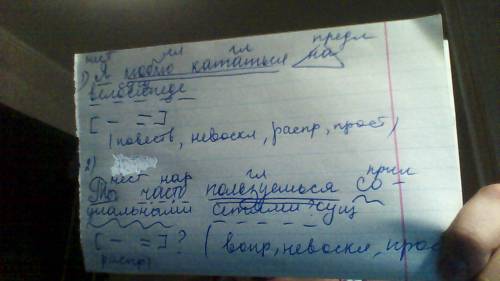 мест гл гл предл
1) Я люблю кататься на
велосипеде
[ — = ]
(повеств, невоскл, распр, прост)
2)
мест нар гл прил
Ты часто пользуешься со
циальными сетями? сущ
[ — = ]? (вопр, невоскл, прос
распр)